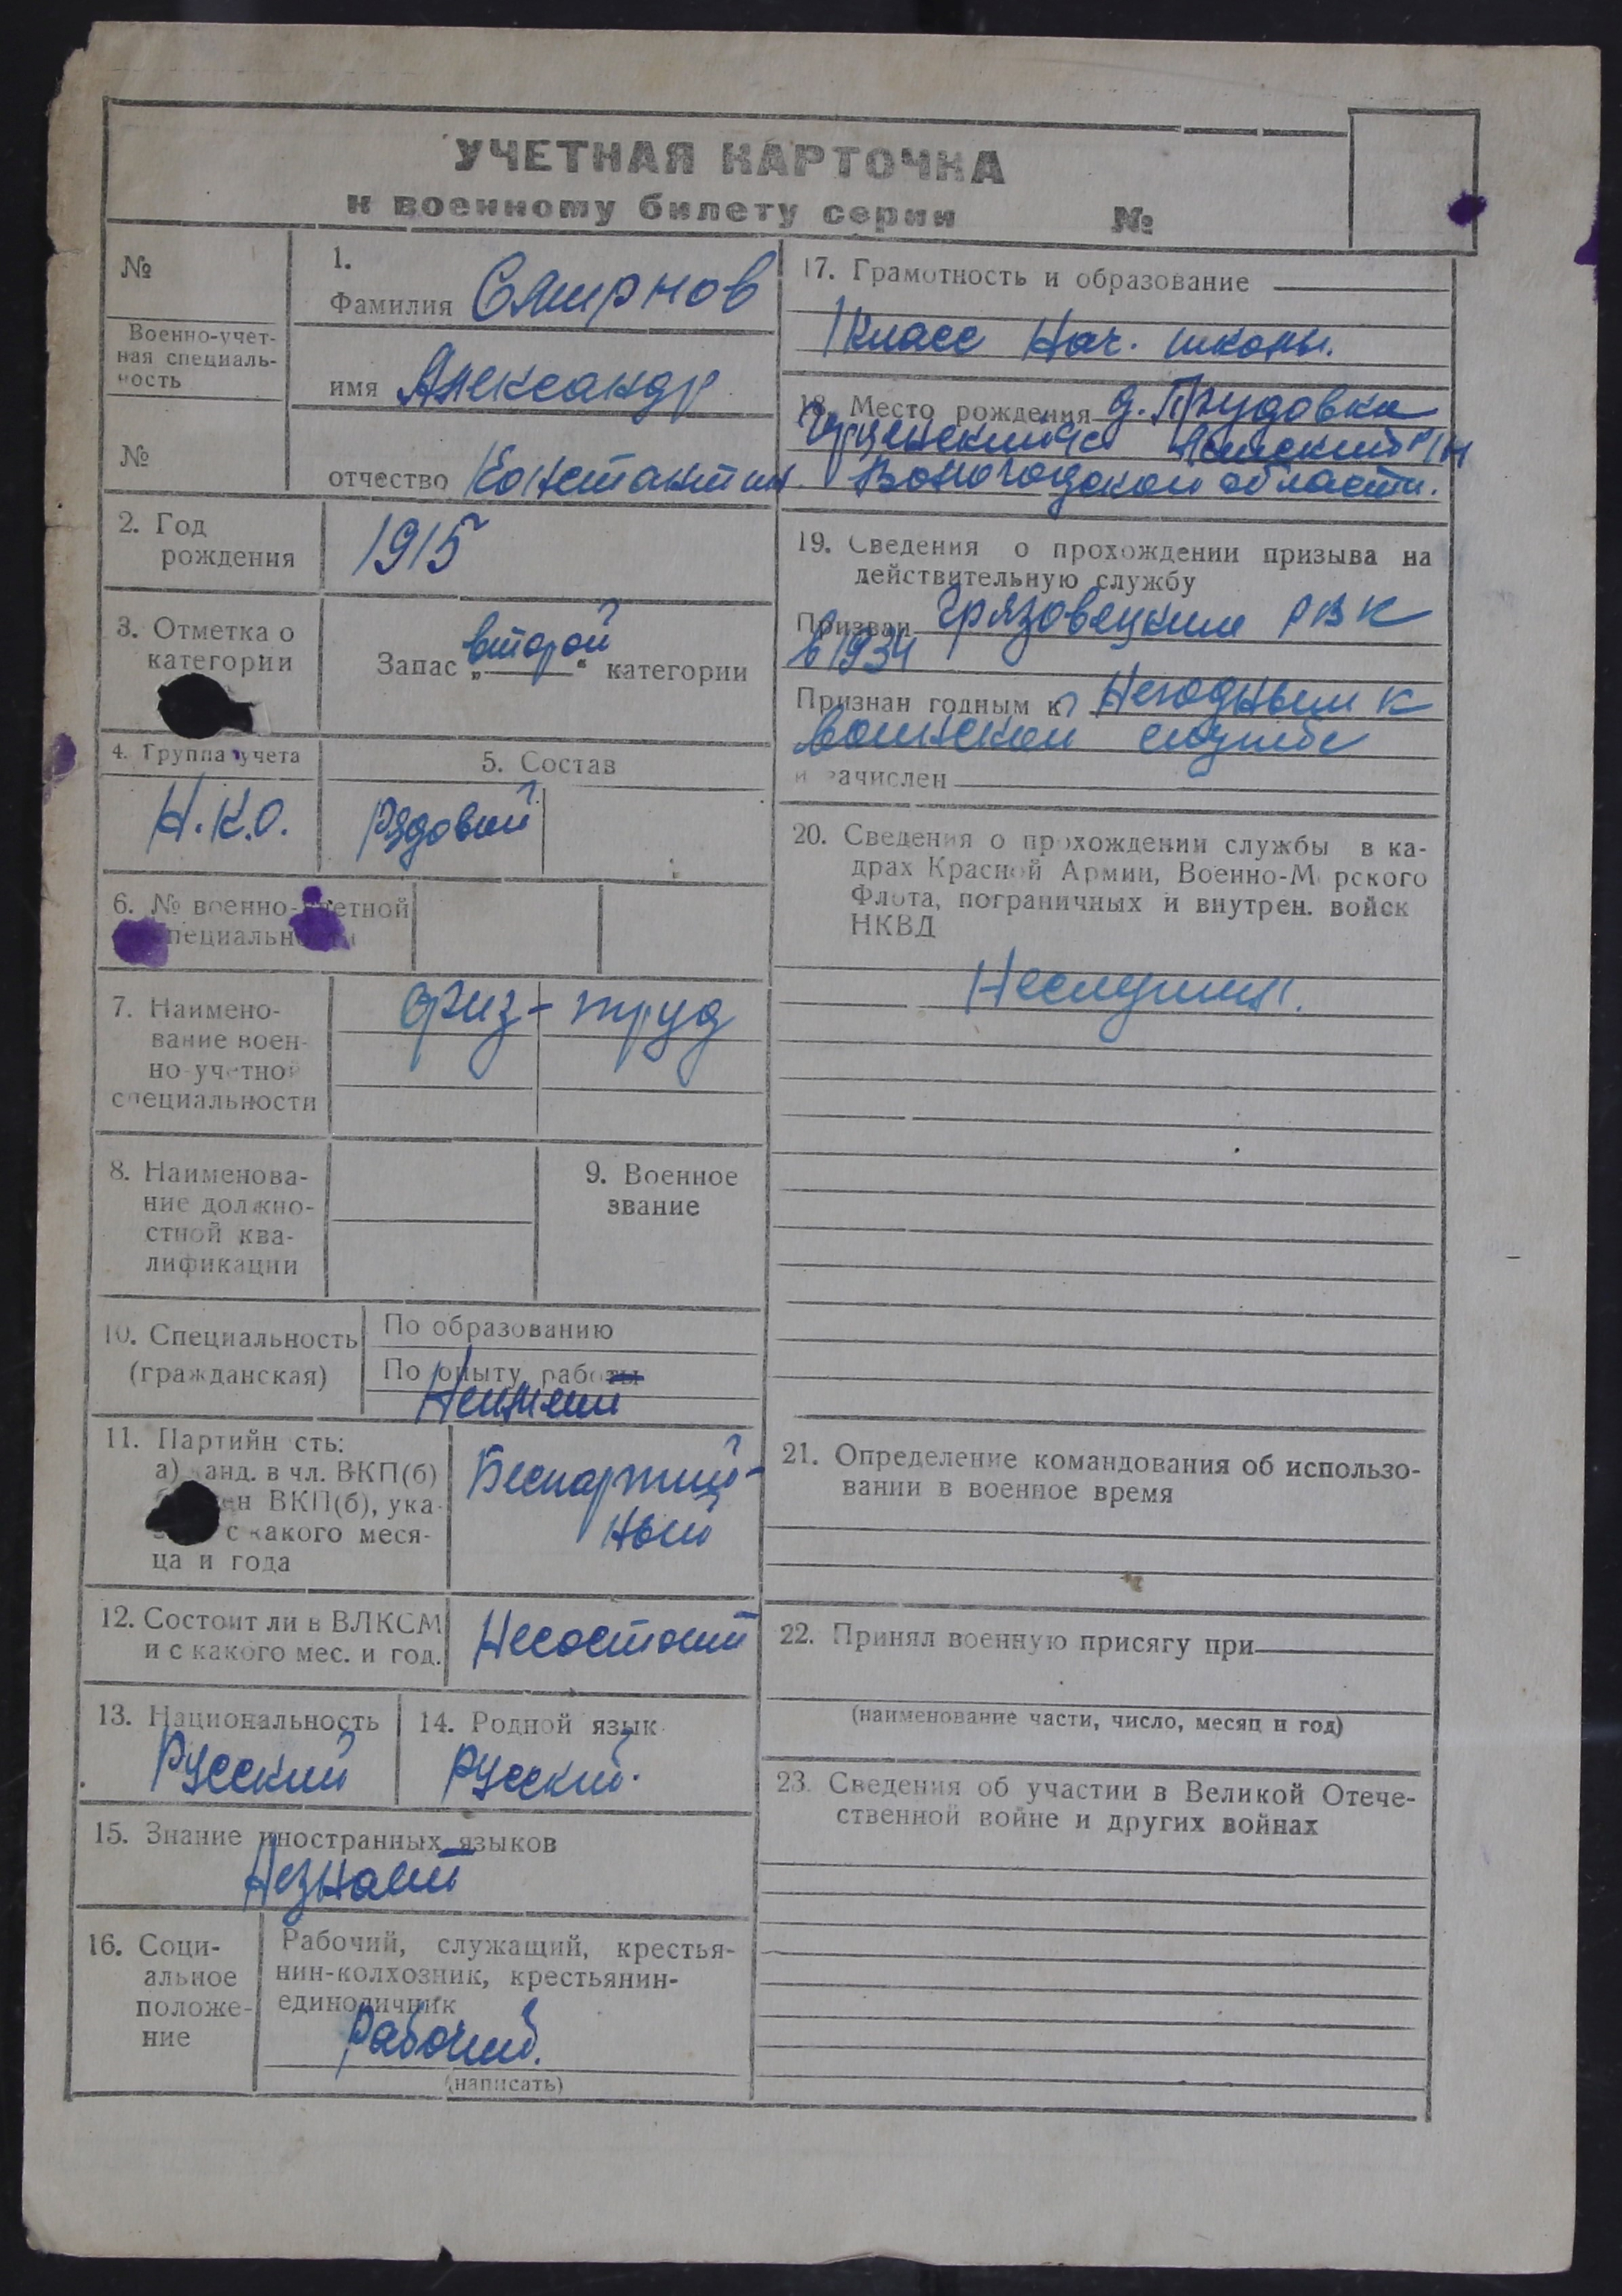 УЧЕТНАЯ КАРТОЧКА
к военному билету серии №
№
Военно-учет-
ная специаль-
ность
№
1.
Фамилия Смирнов
имя Александр
отчество Константин
2. Год
рождения
1915
3. Отметка о
категории
Запас „второй“ категории
4. Группа учета
Н.К.О.
5. Состав
Рядовой
6. № военно-учетной
специальности
7. Наимено-
вание воен-
но-учетной
специальности
физ-труд
8. Наименова-
ние должно-
стной ква-
лификации
9. Военное
звание
10. Специальность
(гражданская)
По образованию
По опыту работы
Неимеит
11. Партийн сть:
а) канд. в чл. ВКП(б)
член ВКП(б), ука-
с какого меся-
ца и года
Беспартий-
ный
12. Состоит ли в ВЛКСМ
и с какого мес. и год.
Несостоит
13. Национальность
Русский
14. Родной язык
Русский.
15. Знание иностранных языков
Незнаит
16. Соци-
альное
положе-
ние
Рабочий, служащий, крестья-
нин-колхозник, крестьянин-
единоличник
Рабочий.
(написать)
17. Грамотность и образование
1 класс Нач. школы.
18. Место рождения д. Прудовка
с/с р/н
Вологодской области.
19. Сведения о прохождении призыва на
действительную службу
Призван Грязовецким РВК
в 1934
Признан годным к Негодным к
воинской службе
и зачислен
20. Сведения о прохождении службы в ка-
драх Красной Армии, Военно-Морского
Флота, пограничных и внутрен. войск
НКВД
Неслужил.
21. Определение командования об использо-
вании в военное время
22. Принял военную присягу при
(наименование части, число, месяц и год)
23. Сведения об участии в Великой Отече-
ственной войне и других войнах